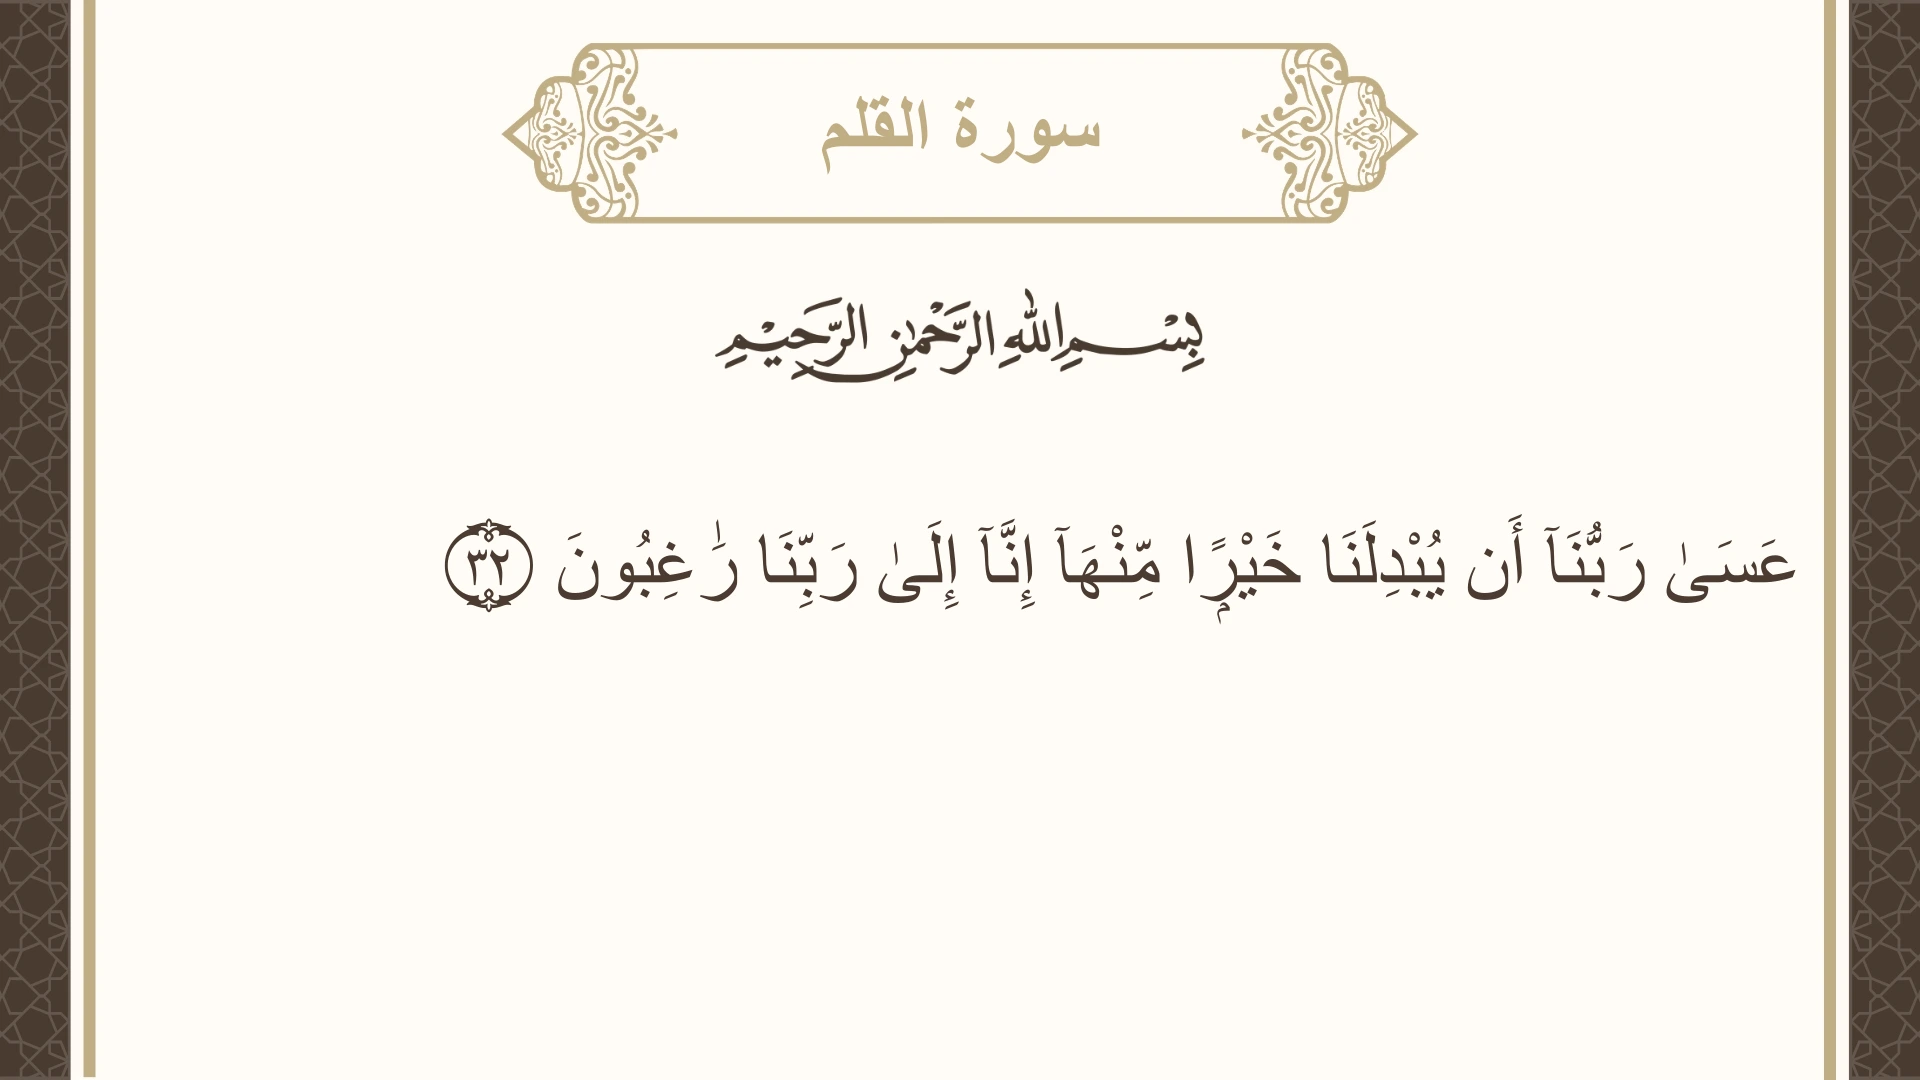 سورة القلم
بِسْمِ اللهِ الرَّحْمٰنِ الرَّحِيْمِ
عَسَىٰ رَبُّنَآ أَن يُبْدِلَنَا خَيْرًۭا مِّنْهَآ إِنَّآ إِلَىٰ رَبِّنَا رَٰغِبُونَ ٣٢